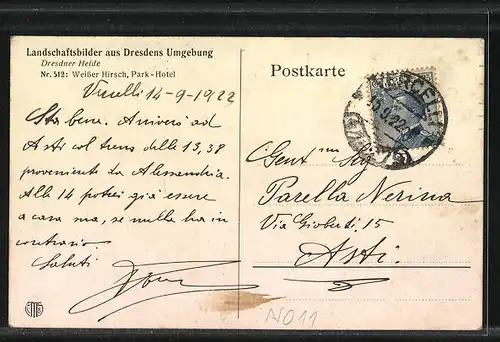 Landschaftsbilder aus Dresdens Umgebung
Dresdner Heide
Nr. 512: Weißer Hirsch, Park-Hotel
Postkarte
14-9-1922
Sta bene. Arriverò ad
Asti col treno delle 13,38
proveniente da Alessandria.
Alle 14 potrei già essere
a casa ma, se nulla ha in
contrario
Saluti
Gent ma Sig
Parella Nerina
Via Gioberti 15
Asti.
NO11